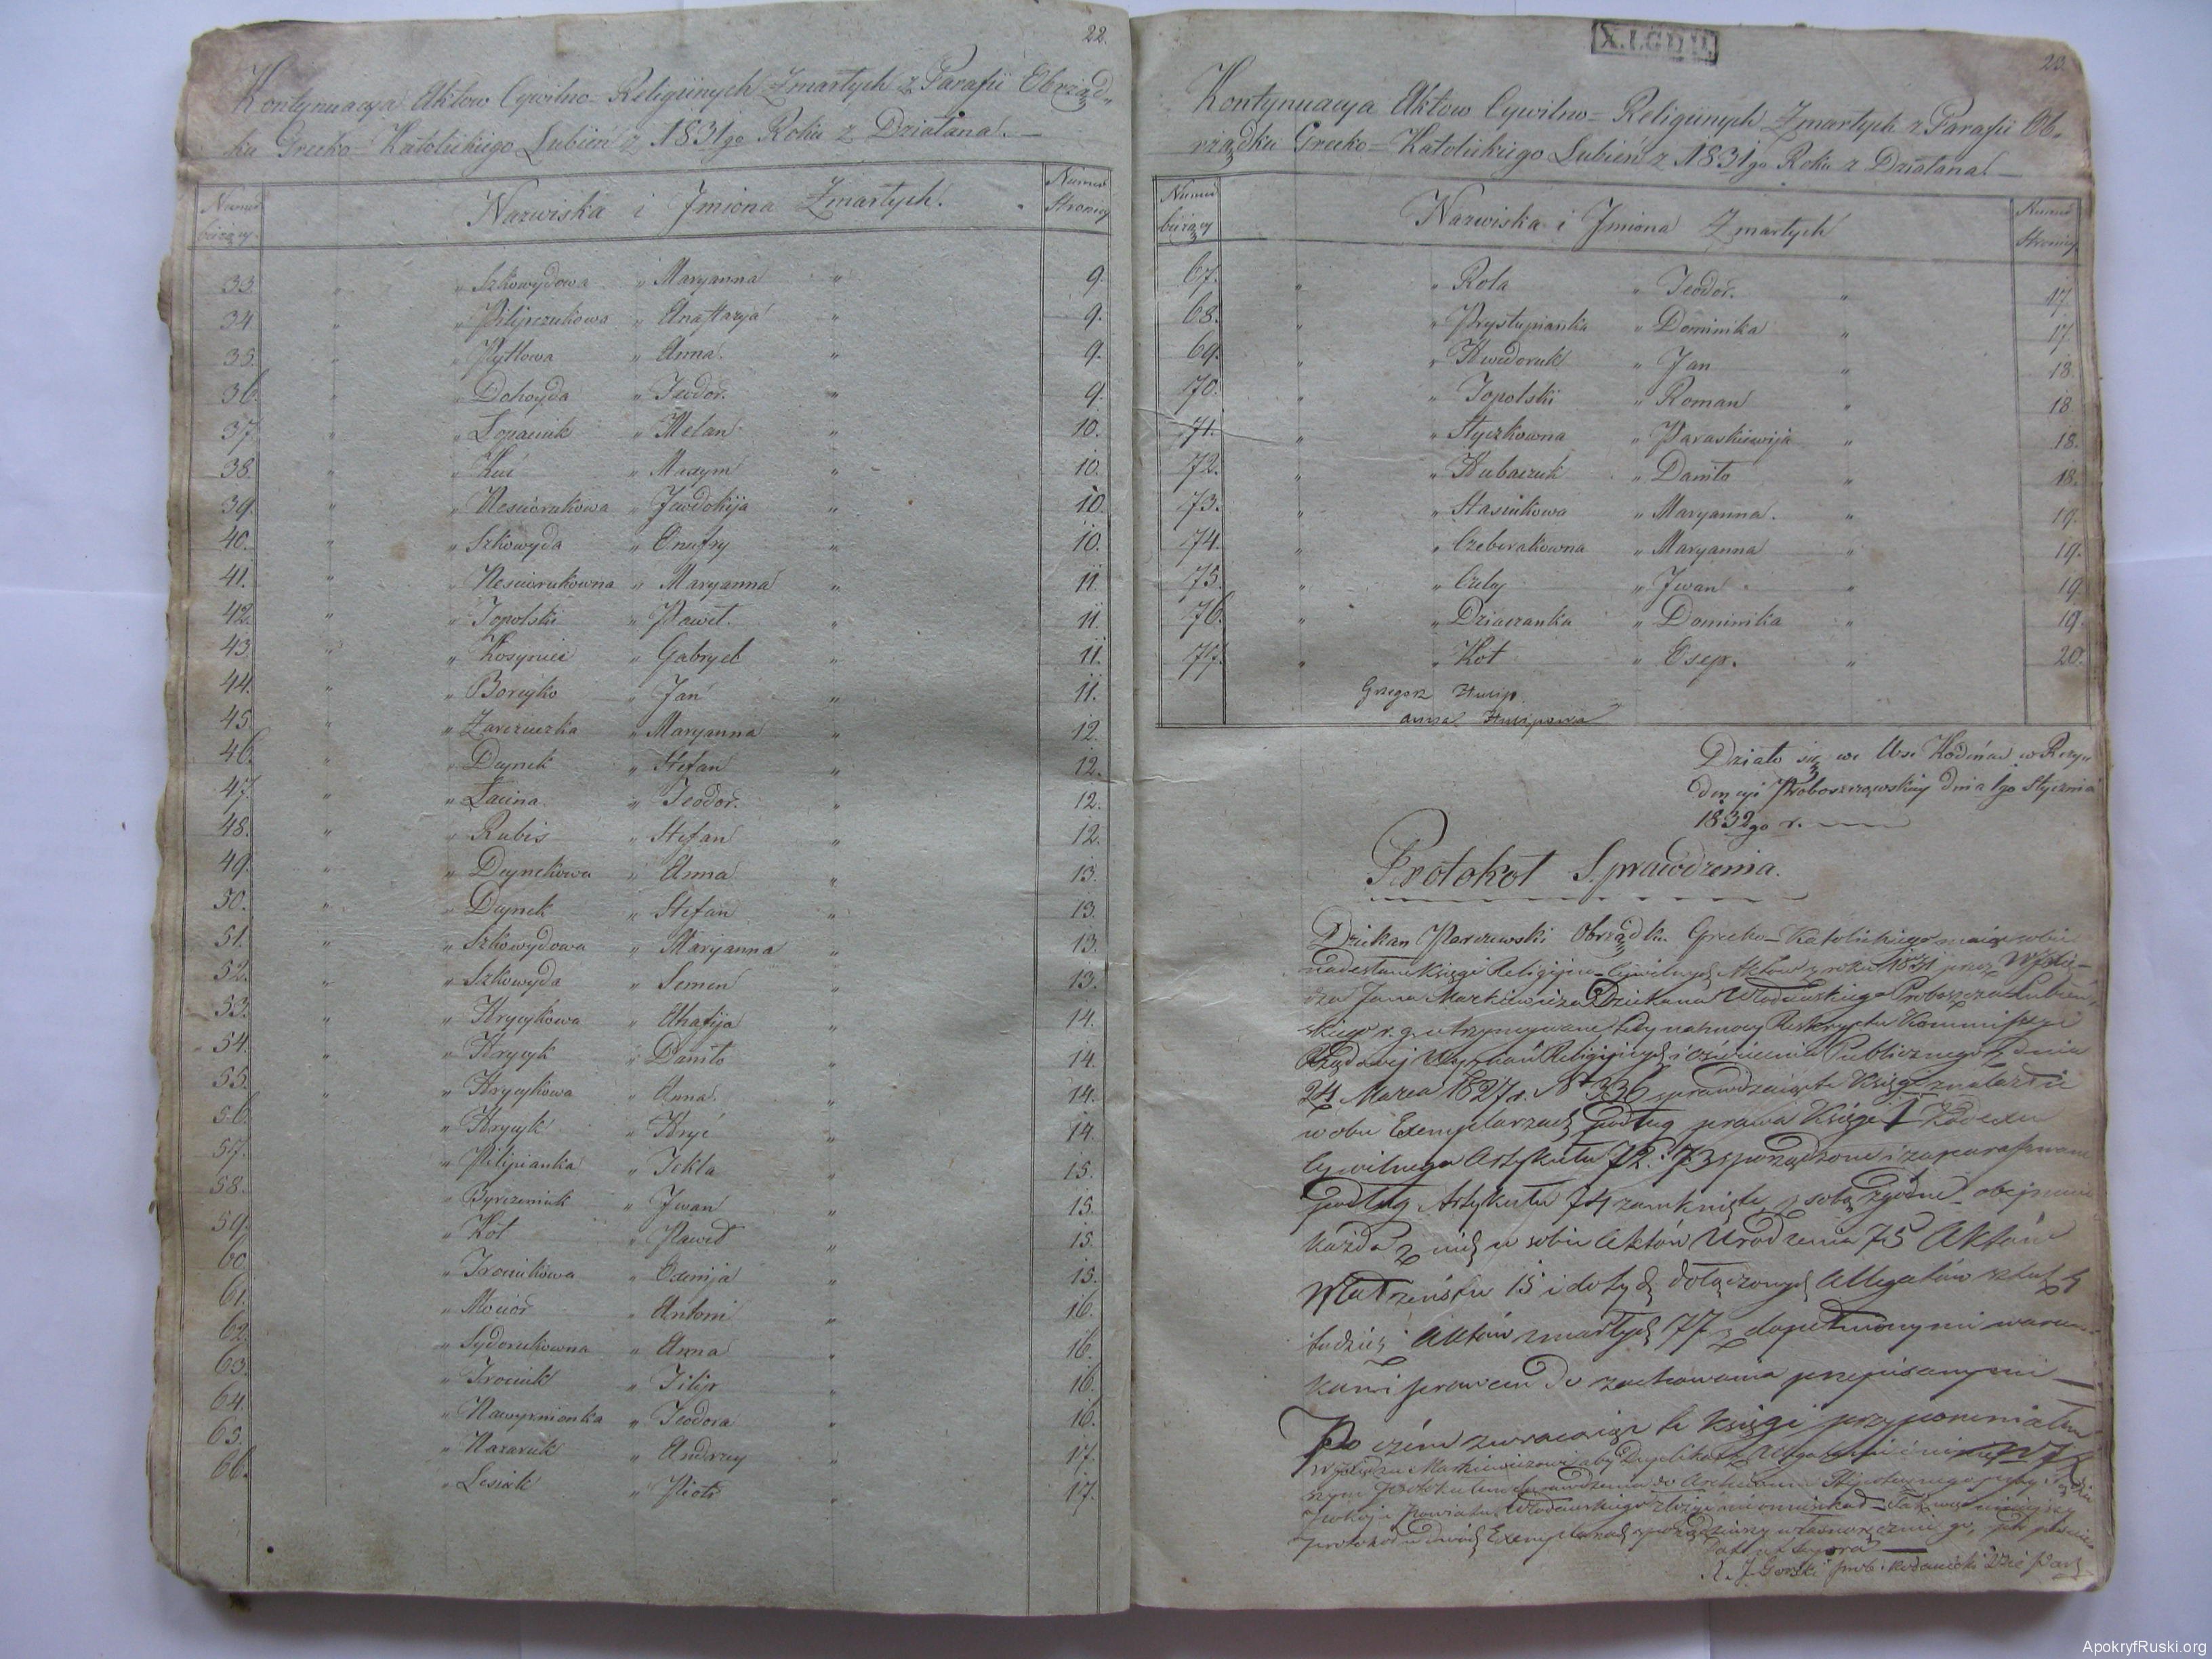 22.
Kontynuacya Aktow Cywilno-Religiinych Zmartych z Parafii Obrząd„
ku Grecko-Katolickiego Lubień z 1831go Roku z Działana.
Numer bieżący. Nazwiska i Jmiona Zmartych. Numer Stronicy
33. " " Szkowydowa " Maryanna " 9.
34 " " Pilipczukowa " Anastazya " 9.
35. " " Pytlowa " Anna. " 9.
36. " " Dohoyda " Teodor. " 9.
37. " " Łopaciuk " Melan " 10.
38. " " Kuć " Maxym " 10.
39. " " Nesciorukowa " Jewdokija " 10
40. " " Szkowyda " Onufry " 10.
41. " " Nesciorukowna " Maryanna " 11
42. " " Topolski " Paweł. " 11.
43 " " Kosyniec " Gabryel " 11.
44. " " Boreyko " Jan " 11.
45. " " Maryanna " 12.
46. " " Deynek " Stefan " 12.
47. " " Łacina " Teodor. " 12.
48. " " Rubis " Stefan " 12.
49. " " Deynekowa " Anna " 13.
50. " " Deynek " Stefan " 13.
51. " " Szkowydowa " Maryanna " 13.
52. " " Szkowyda " Semen " 13.
53. " " Hrycykowa " Ahafija " 14.
54. " " Hrycyk " Daniło " 14.
55. " " Hrycykowa " Anna " 14.
56. " Hrycyk " Hryć " 14.
57. " Pilipianka " Tekla " 15.
58. " Jwan " 15.
59. " Kot " Paweł " 15.
60. " Trociukowa " Oxenija " 15.
61. " Antoni " 16.
62. " Sydorukowna " Anna " 16.
63. " Trociuk " Filip " 16.
64. " " Teodora " 16.
65. " Nazaruk " Andrzey " 17.
66. " Lesiuk " Piotr " 17.
X.I.G.D.U.
23.
Kontynuacya Aktow Cywilno-Religiinych Zmartych z Parafii Ob-
rządku Grecko-Katolickiego Lubień z 1831go Roku z Działana.
Numer bieżący Nazwiska i Jmiona Zmartych Numer Stronicy
67. " " Rola " Teodor. " 17
68. " " Prystupianka " Dominika " 17
69. " " Kwedoruk " Jan " 18
70. " " Topolski " Roman " 18
71. " " Styczkowna " Paraskiewija " 18.
72. " " Hubaczuk " Daniło " 18.
73. " " Stasiukowa " Maryanna. " 19.
74. " " Czeberakowna " Maryanna " 19.
75. " " Cuby " Jwan " 19
76. " " Dziaczanka " Dominika " 19.
77. " " Kot " Osep. " 20.
Grzegorz Husip
anna Husipowa
Działo się we Wsi w Rezy
dencyi Proboszczowskiey dnia 1go Stycznia
1832go r.
Protokoł Sprawdzenia.
Dziekan Parczewski Obrządku Grecko-Katolickiego maiąc sobie
nadesłane Księgi Religijno-Cywilnych Aktow z roku 1831 przez
Jana Markiewicza Dziekana Włodawskiego Proboszcza Lubień
skiego r. g. utrzymywane, tedy na mocy Reskryptu Kommissyi
Rządowej Wyznań Religijnych i Oświecenia Publicznego z dnia
24 Marca 1827 r. No 336 sprawdzaiąc te Księgi znalazł ie
w obu Exemplarzach podług prawa Księgi I Kodexu
Cywilnego Artykułu 72. 73 sporządzone i zaparafowane
podług Artykułu 74 zamknięte, z sobą zgodne obejmuie
każda z nich w sobie Aktów Urodzenia 75 Aktów
Małżeństw 15 i do tych dołączonych Allegatów sztuk
tudzież Aktów zmarłych 77 z dopełnionymi warun-
kami prawem do zachowania przepisanymi —
Po czém zwracaiąc te księgi
Markiewiczowi, aby Duplikat
Protokułem sprawdzenia do Archiwum Hypotecznego przy Sądzie
Pokoju Powiatu Włodawskiego złożyć nie omieszkał —
protokół w dwóch Exemplarzach
Datt ut supra
X. J. Gorski
ApokryfRuski.org